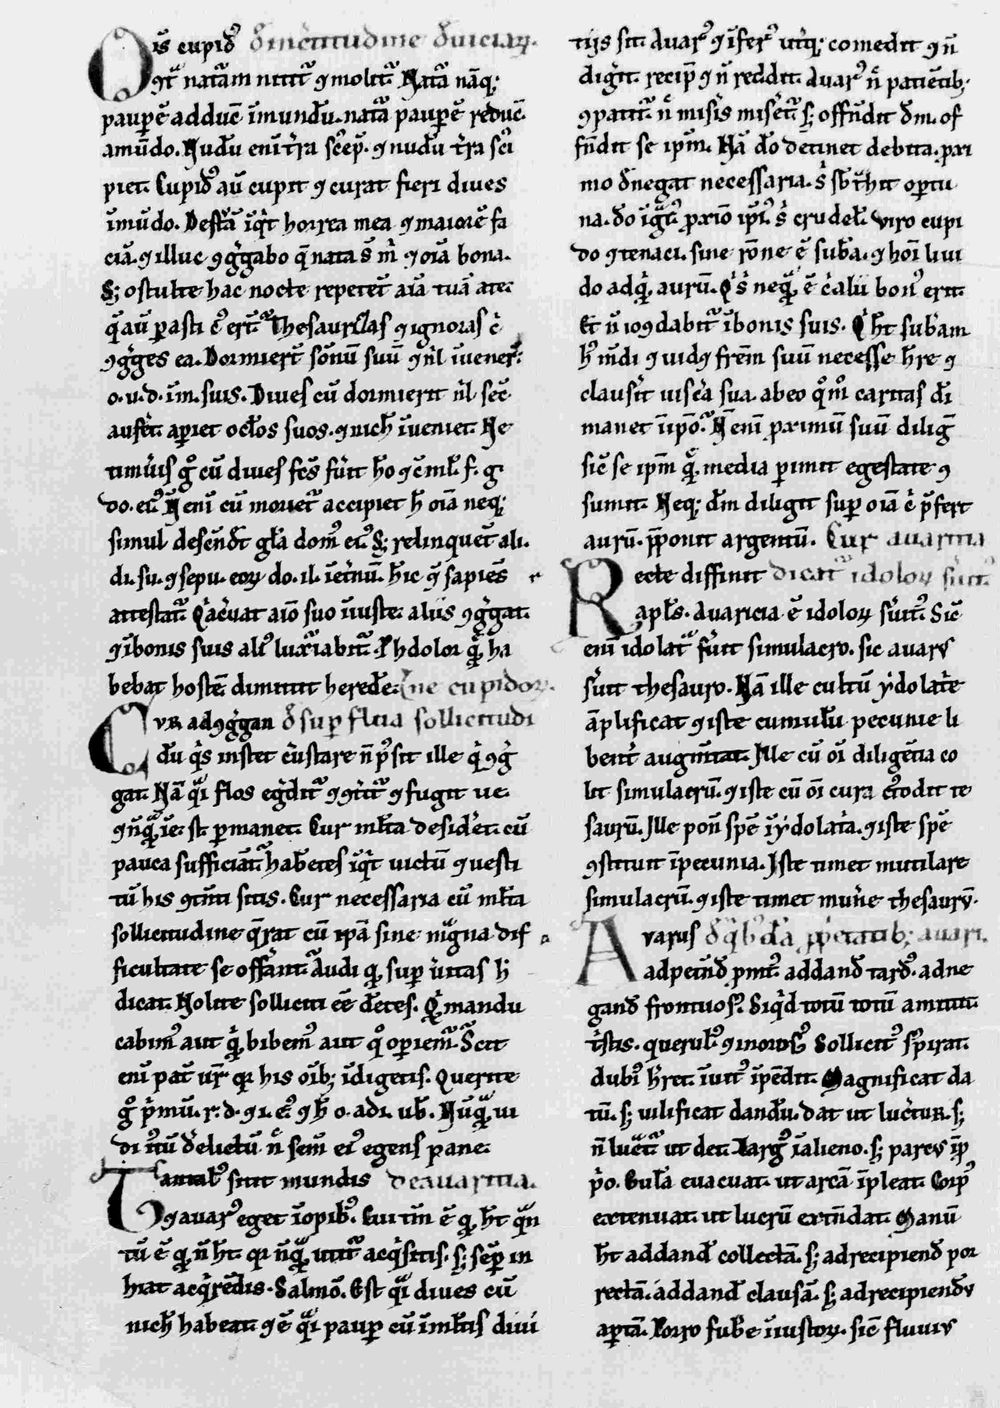 Oīs cupidꝰ de incertitudine diuiciaꝝ.
ꝯᵗᵃ natāam nititᵃ ꝯ molitᵃ. Natᵃa nāqꝫ
paupē adduc̄ ī mundū. natᵃa paupē reduc̄
a mūdo. Nudū enī tr̄a scēp̄. ꝯ nudū tr̄a sci
piet. Cupidꝰ aū cupit ꝯ curat fieri diues
ī mūdo. Destᵃā īqͥt horrea mea ꝯ maioꝛa fa
ciā. ꝯ illuc ꝯgͤgabo q̄ nata s̄ m̄ ꝯ oīa bona.
Sꝫ o stulte hac nocte repetēt aīā tuā a te.
q̄ aū parasti cꝰ erūt. Thesaurizas ꝯ ignoras cͥ
ꝯgͤges ea. Dormierūt sōnū suū ꝯ nͥl īuenerᵗ
o. u. d. ī m. suis. Diues cū dormierit nͥl sec̄
auf̄et. apiet oclos suos. ꝯ nich̄ īueniet. Ne
timūis gͦ cū diues fc̄s fūit h̄o ꝯ cͫ ml̄. f. g.
do. eiꝰ. N enī cū morietᵃ accipiet h̄ oīa neqꝫ
simul descēdt gl̄a domꝰ eiꝰ. Sꝫ relinquet ali.
di. su. ꝯ sepu. eoꝝ do. il. ī etnū. hīc qͥ sapiēs
attestatᵃ. Qͥ acuat aīo suo īiuste. aliis ꝯgͤgat.
ꝯ ī bonis suis aliꝰ luxᵃiabitᵃ. Ph dolor qͣ ha
bebat hostē dimittit heredē. ne cupidoꝝ.
CVR ad ꝯgͤgan de supflua sollicitudi
dū qͥs instet cūstare n̄ pͦsit ille qͥ ꝯgͤ
gat. Nā qͣi flos egͤditᵃ ꝯ ꝯtͥtᵃ ꝯ fugit ue
ꝯ nūqͣ ī e. st. pmanet. Cur ml̄ta desid̄et. cū
pauca sufficiāt. habētes īqͥt uictū ꝯ uesti
tū his ꝯtēti sitis. Cur necessaria cū ml̄ta
sollicitudine q̄rat cū ipā sine magna dif
ficultate se offāt. Audi qͩ sup ūitas h̄
dicat. Nolite solliciti eē dc̄tes. Qͩ mandu
cabimꝰ aut qͩ bibemꝰ aut qͦ opiem. Scit
enī pat̄ ur̄ qꝛ his oībꝫ īdigetis. Querite
gͦ pͥmū. r. d. ꝯ i. eiꝰ ꝯ h̄ o. adi. ub̄. Nūqͣ ui
di iꝰtū delictū n̄ sem̄ eiꝰ egens pane.
Tantalꝰ sitit mundis de auaritia.
ꝯ auarꝰ eget ī opibꝰ. Cui tm̄ ē qͩ h̄t qͣn
tū ē qͩ n̄ h̄t. qꝛ nūqͣ utitᵃ acqͥsitis. sꝫ sēp in
hiat acqͥrēdis. Salmō. Est qͣi diues cū
nich̄ habeat. ꝯ ē qͣi paup cū ī ml̄tis diui
tiis sit. Auarꝰ ꝯ īferꝰ utqꝫ comedit ꝯ n̄
digit. recip̄ ꝯ n̄ reddit. Auarꝰ n̄ patiētibꝫ
ꝯpatitᵃ. n̄ misis misētᵃ. sꝫ offn̄dit dm̄. of
fn̄dit se ipm̄. Nā do detinet debita. pxi
mo d̄negat necessaria. s̄ sb̄thit optu
na. do īgtꝰ. pxīo ipīꝰ. s̄ crudelꝰ. Viro cupi
do ꝯ tenaci. sine rōne ē subā. ꝯ hoī liui
do ad qͥ. aurū. Qͥ s̄ neqͣ ē cͥ alii bonꝰ erit.
Et n̄ iocūdabitᵃ ī bonis suis. Qͥ h̄t sub̄am
hꝰ mūdi ꝯ uidꝫ frēm suū necesse h̄re ꝯ
clausit uiscā sua. ab eo qͦmͦ caritas di
manet ī ipō. N enī pximū suū diliḡ
sic̄ se ipm̄ qͥ media pimit egestate ꝯ
sumit. Neqꝫ dm̄ diligit sup oīa cͥ p̄fert
aurū. p̄ponit argentū. Cur auaritia
Recte diffinit dicatᵃ idoloꝝ s̄uitꝰ.
apl̄s. auaricia ē idoloꝝ s̄uitꝰ. Sic̄
enī idolatᵃ s̄uit simulacro. sic auarꝰ
s̄uit thesauro. Nā ille cultū ydolat̄e
āplificat ꝯ iste cumulū pecunie li
bent̄ augm̄tat. Ille cū oī diligētia co
lit simulacrū. ꝯ iste cū oī cura cꝰtodit te
saurū. Ille ponit spē ī ydolatᵃa. ꝯ iste spē
ꝯstituit ī pecunia. Iste timet mutilare
simulacrū. ꝯ iste timet minūe thesaurū.
Avarus de qͥbꝰdā ppͥetatibꝫ auari.
ad petēdū pmtꝰ. ad dandū tardꝰ. ad ne
gandū frontuosꝰ. Si qͥd totū totū amittit.
tͥstis. querulꝰ ꝯ morosꝰ. Sollicitꝰ sͥpirat.
dubiꝰ h̄ret. īuitꝰ īpēdit. Magnificat da
tū. sꝫ uilificat dandū. dat ut lucͤtur. sꝫ
n̄ lucᵃtᵃ ut det. Largꝰ ī alieno. sꝫ parcꝰ ī p
pͥo. Gulā euacuat. ut arcā īpleat. Corpꝰ
extenuat. ut lucrū extēdat. Manū
h̄t ad dandū collectā. sꝫ ad recipiendū por
rectā. ad dandū clausā. sꝫ ad recipiendū
aptā. Porro subst̄e īiustoꝝ. sic̄ fluuiꝰ